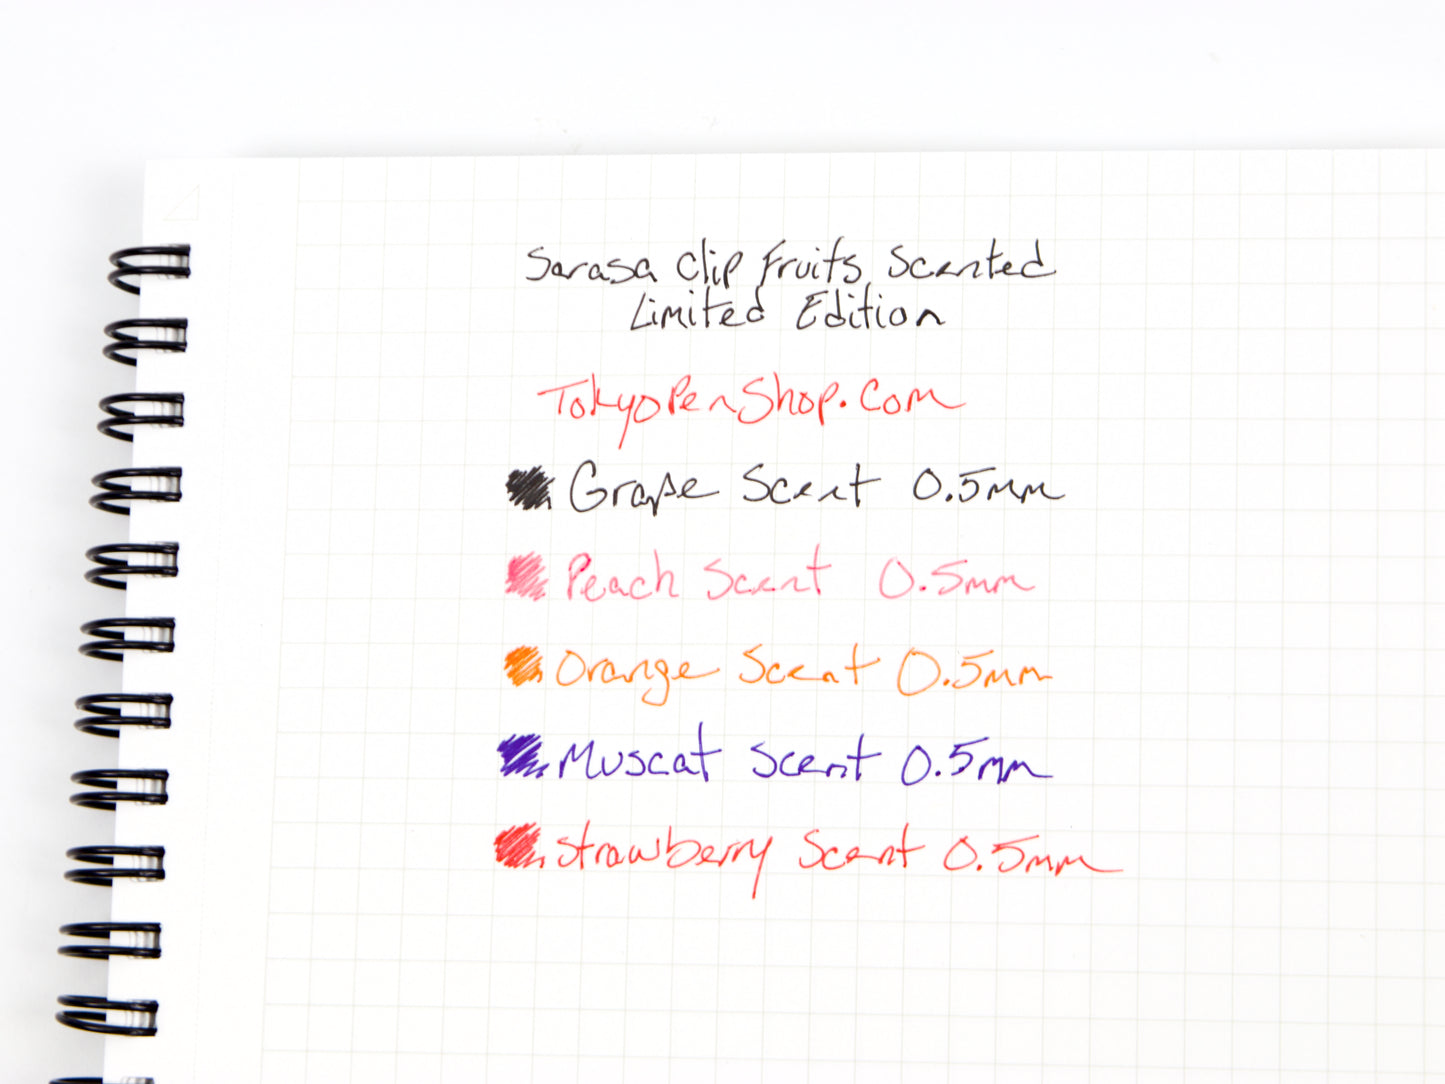 Sarasa Clip Fruits Scented
Limited Edition
TokyoPenShop.Com
Grape Scent 0.5mm
Peach Scent 0.5mm
Orange Scent 0.5mm
Muscat Scent 0.5mm
Strawberry Scent 0.5mm